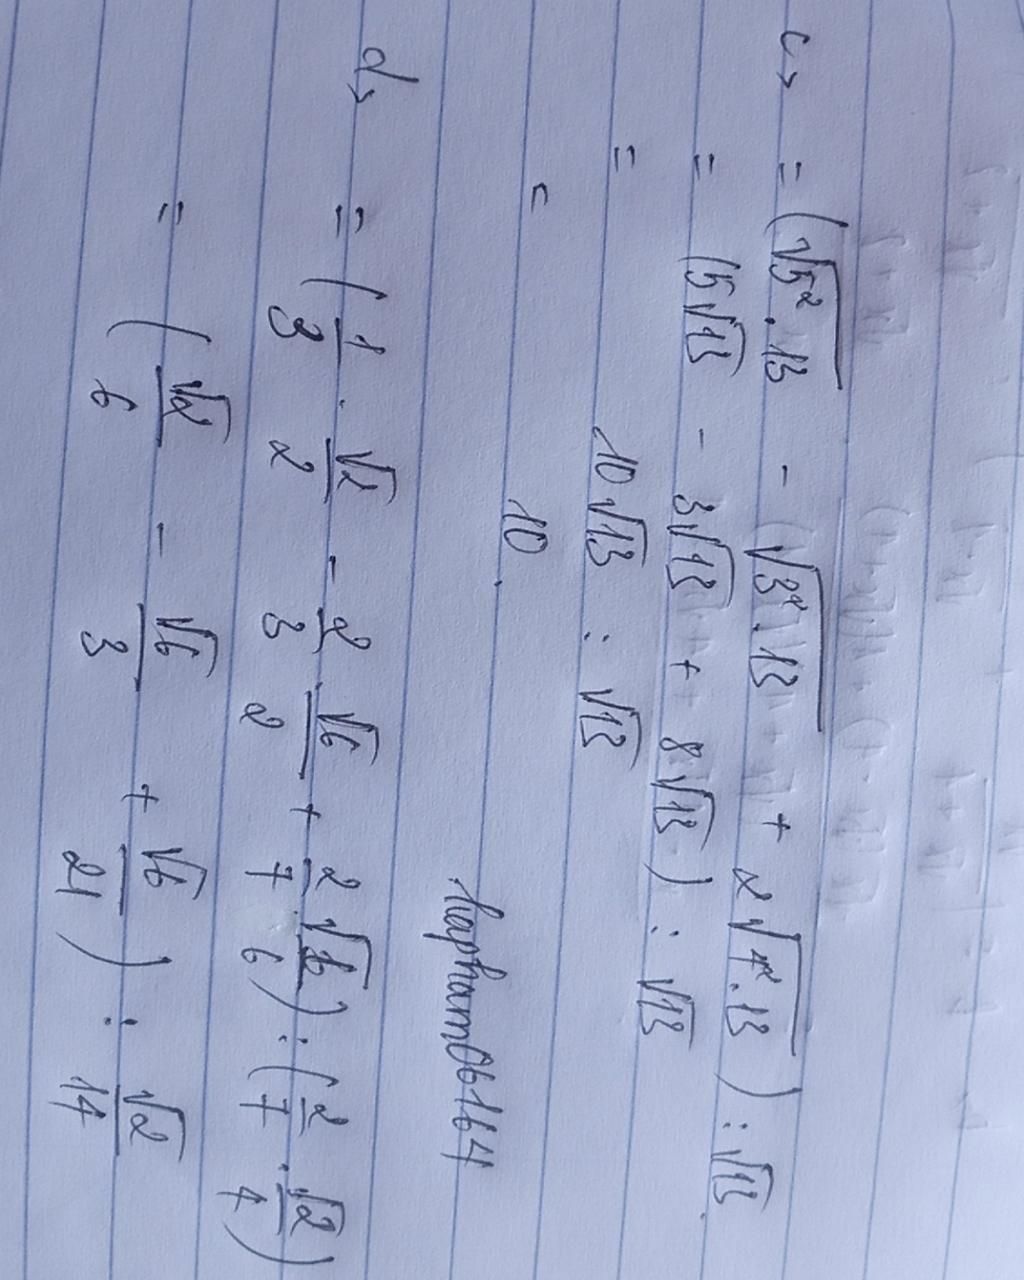 c, = (√5².13 - √3².13 + 2√4².13) : √13
= (5√13 - 3√13 + 8√13) : √13
= 10√13 : √13
= 10.
hapham06164
d, = (1/3 . √2/2 - 2/3 √6/2 + 2/7 . √6/6) : (2/7 . √2/4)
= (√2/6 - √6/3 + √6/21) : √2/14